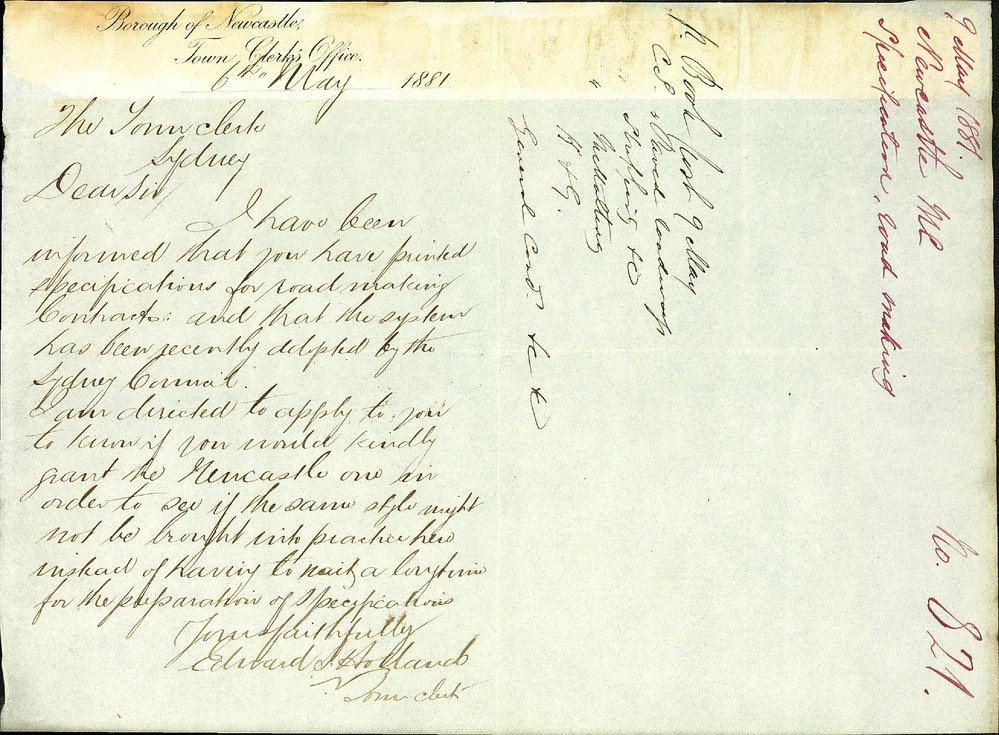 Borough of Newcastle,
Town Clerk's Office.
6th May 1881
The Town Clerk
Sydney
Dear Sir
I have been
informed that you have printed
specifications for road making
Contracts: and that the system
has been recently adopted by the
Sydney Council.
I am directed to apply to you
to know if you would kindly
grant the Newcastle one in
order to see if the same style might
not be brought into practice here
instead of having to wait a long time
for the preparation of specifications
Yours faithfully
Edward S. Holland
Town clerk
Book post 9 May
Stuffing &c
"
Metalling
K & G.
General Cond. &c &c
9 May 1881.
Newcastle MC
Specification, road making
No. 821.